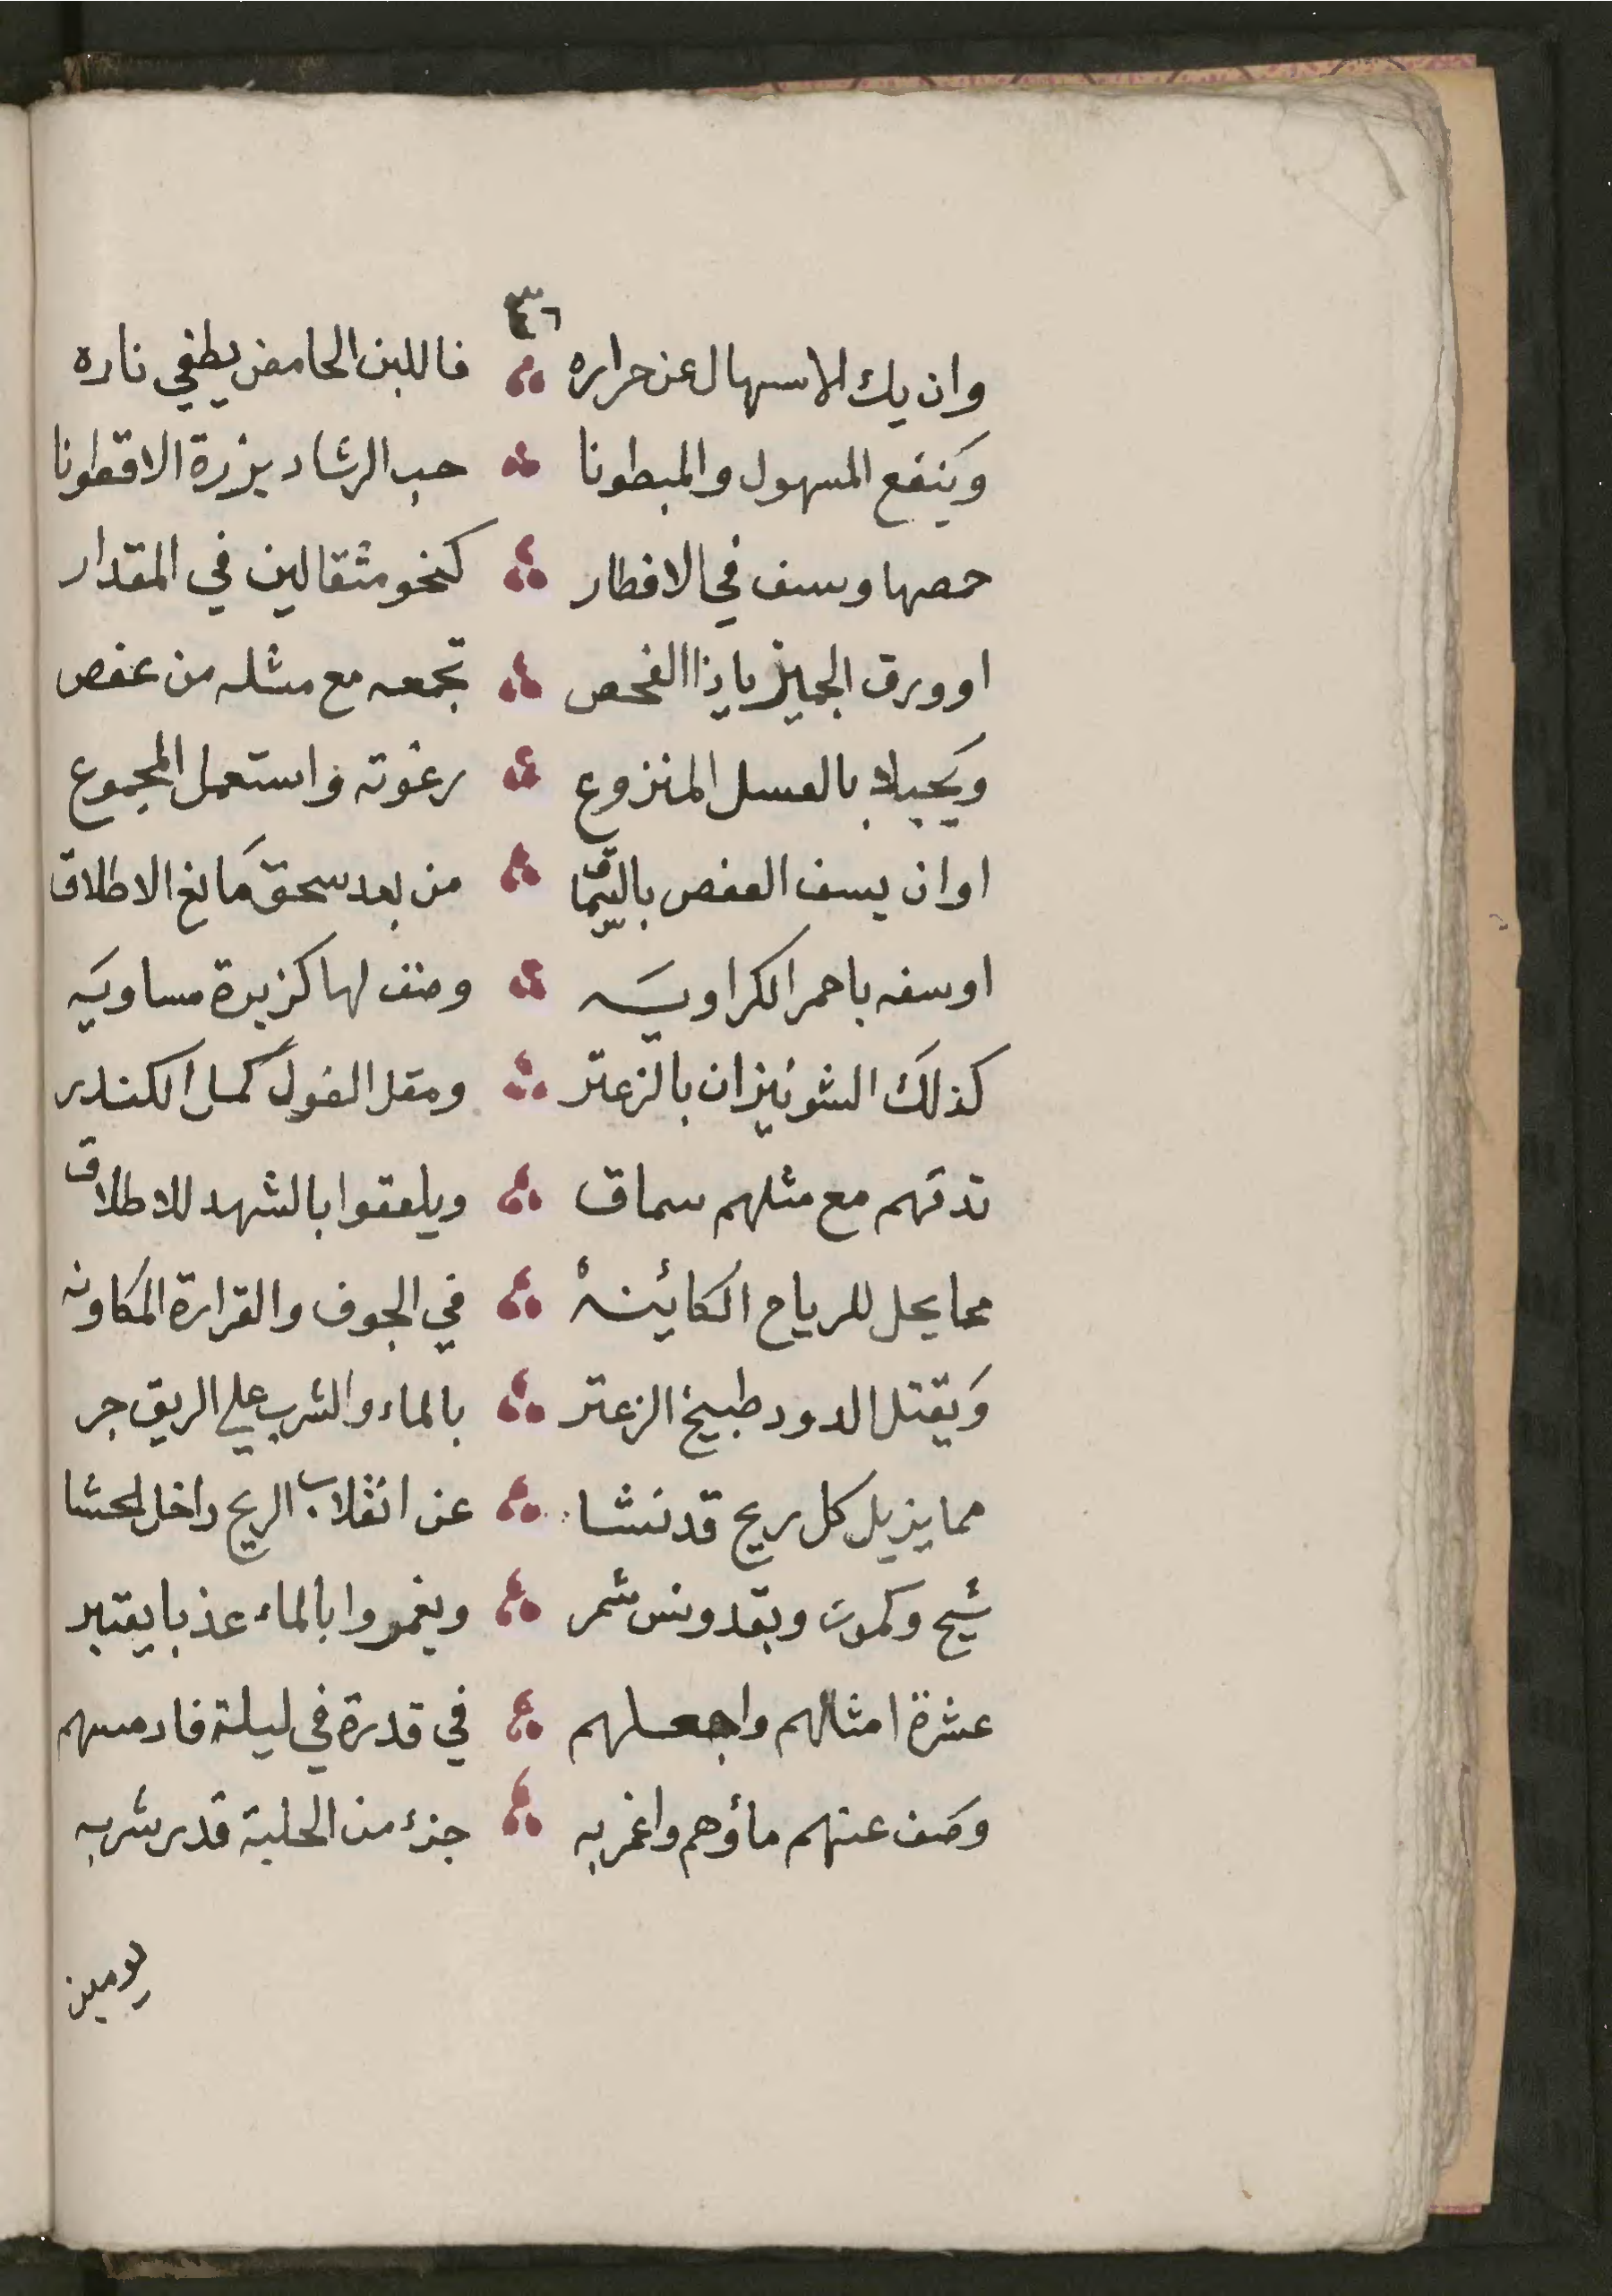 ٣٦
وان يك الاسهال عن حراره فاللبن الحامض يطفي ناره
وَينفع المسهول والمبطونا حب الرشاد بزرة الاقطونا
حمصها وسف في الافطار كنحو مثقالين في المقدار
او ورق الجميز ياذا الفحص تجمعه مع مثله من عفص
وَيجبلا بالعسل المنزوع رغوته واستعمل المجموع
اوان يسف العفص من بعد سحق مَانع الاطلاق
اوسفه باحمر الكراويَه وضف لها كزبرة مساويَه
كذلك الشونيزان بالزعتر ومقل الفول كمل الكندر
تدقهم مع مثلهم سماق ويلعقوا بالشهد للاطلاق
مما يحل للرياح الكائينةْ في الجوف والقرارة المكاونه
وَيقتل الدود طبيخ الزعتر بالماء والشرب علي الريق جر
مما يزيل كل ريح قد نشا عن انقلاب الريح داخل الحشا
شيح وكمون وبقدونس شمر ويغمروا بالماء عذبا يعتبر
عشرة امثالهم واجعلهم في قدرة في ليلة فادمسهم
وصَف عنهم مأوهم واغمر به جزء من الحلبة قدر شربه
يومين